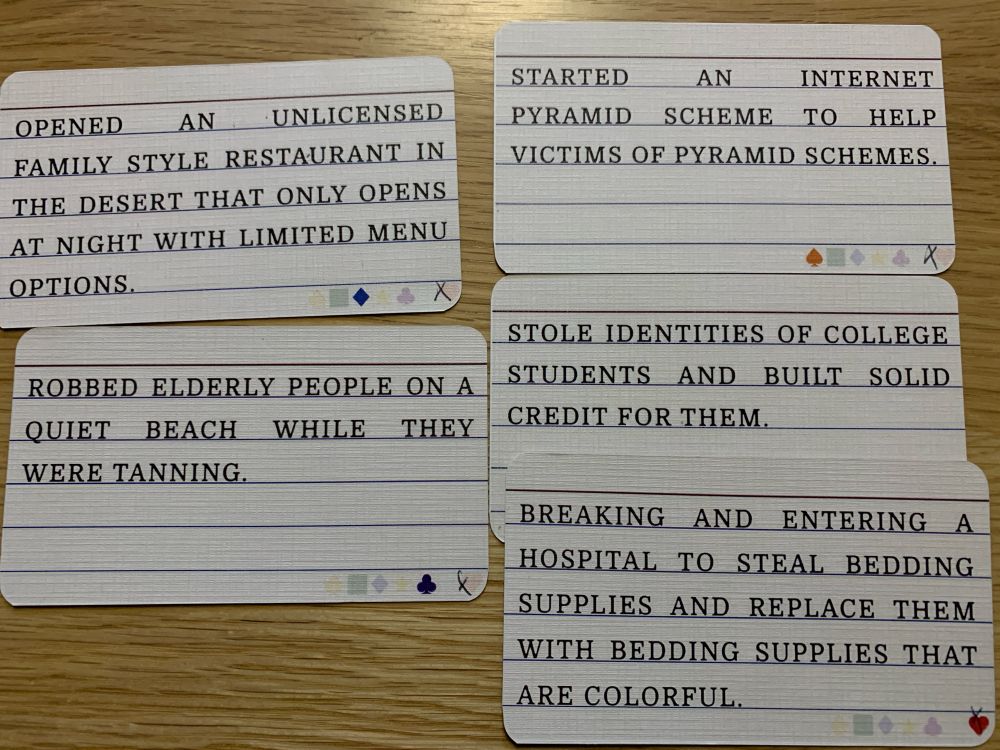 OPENED AN UNLICENSED
FAMILY STYLE RESTAURANT IN
THE DESERT THAT ONLY OPENS
AT NIGHT WITH LIMITED MENU
OPTIONS.
ROBBED ELDERLY PEOPLE ON A
QUIET BEACH WHILE THEY
WERE TANNING.
STARTED AN INTERNET
PYRAMID SCHEME TO HELP
VICTIMS OF PYRAMID SCHEMES.
STOLE IDENTITIES OF COLLEGE
STUDENTS AND BUILT SOLID
CREDIT FOR THEM.
BREAKING AND ENTERING A
HOSPITAL TO STEAL BEDDING
SUPPLIES AND REPLACE THEM
WITH BEDDING SUPPLIES THAT
ARE COLORFUL.